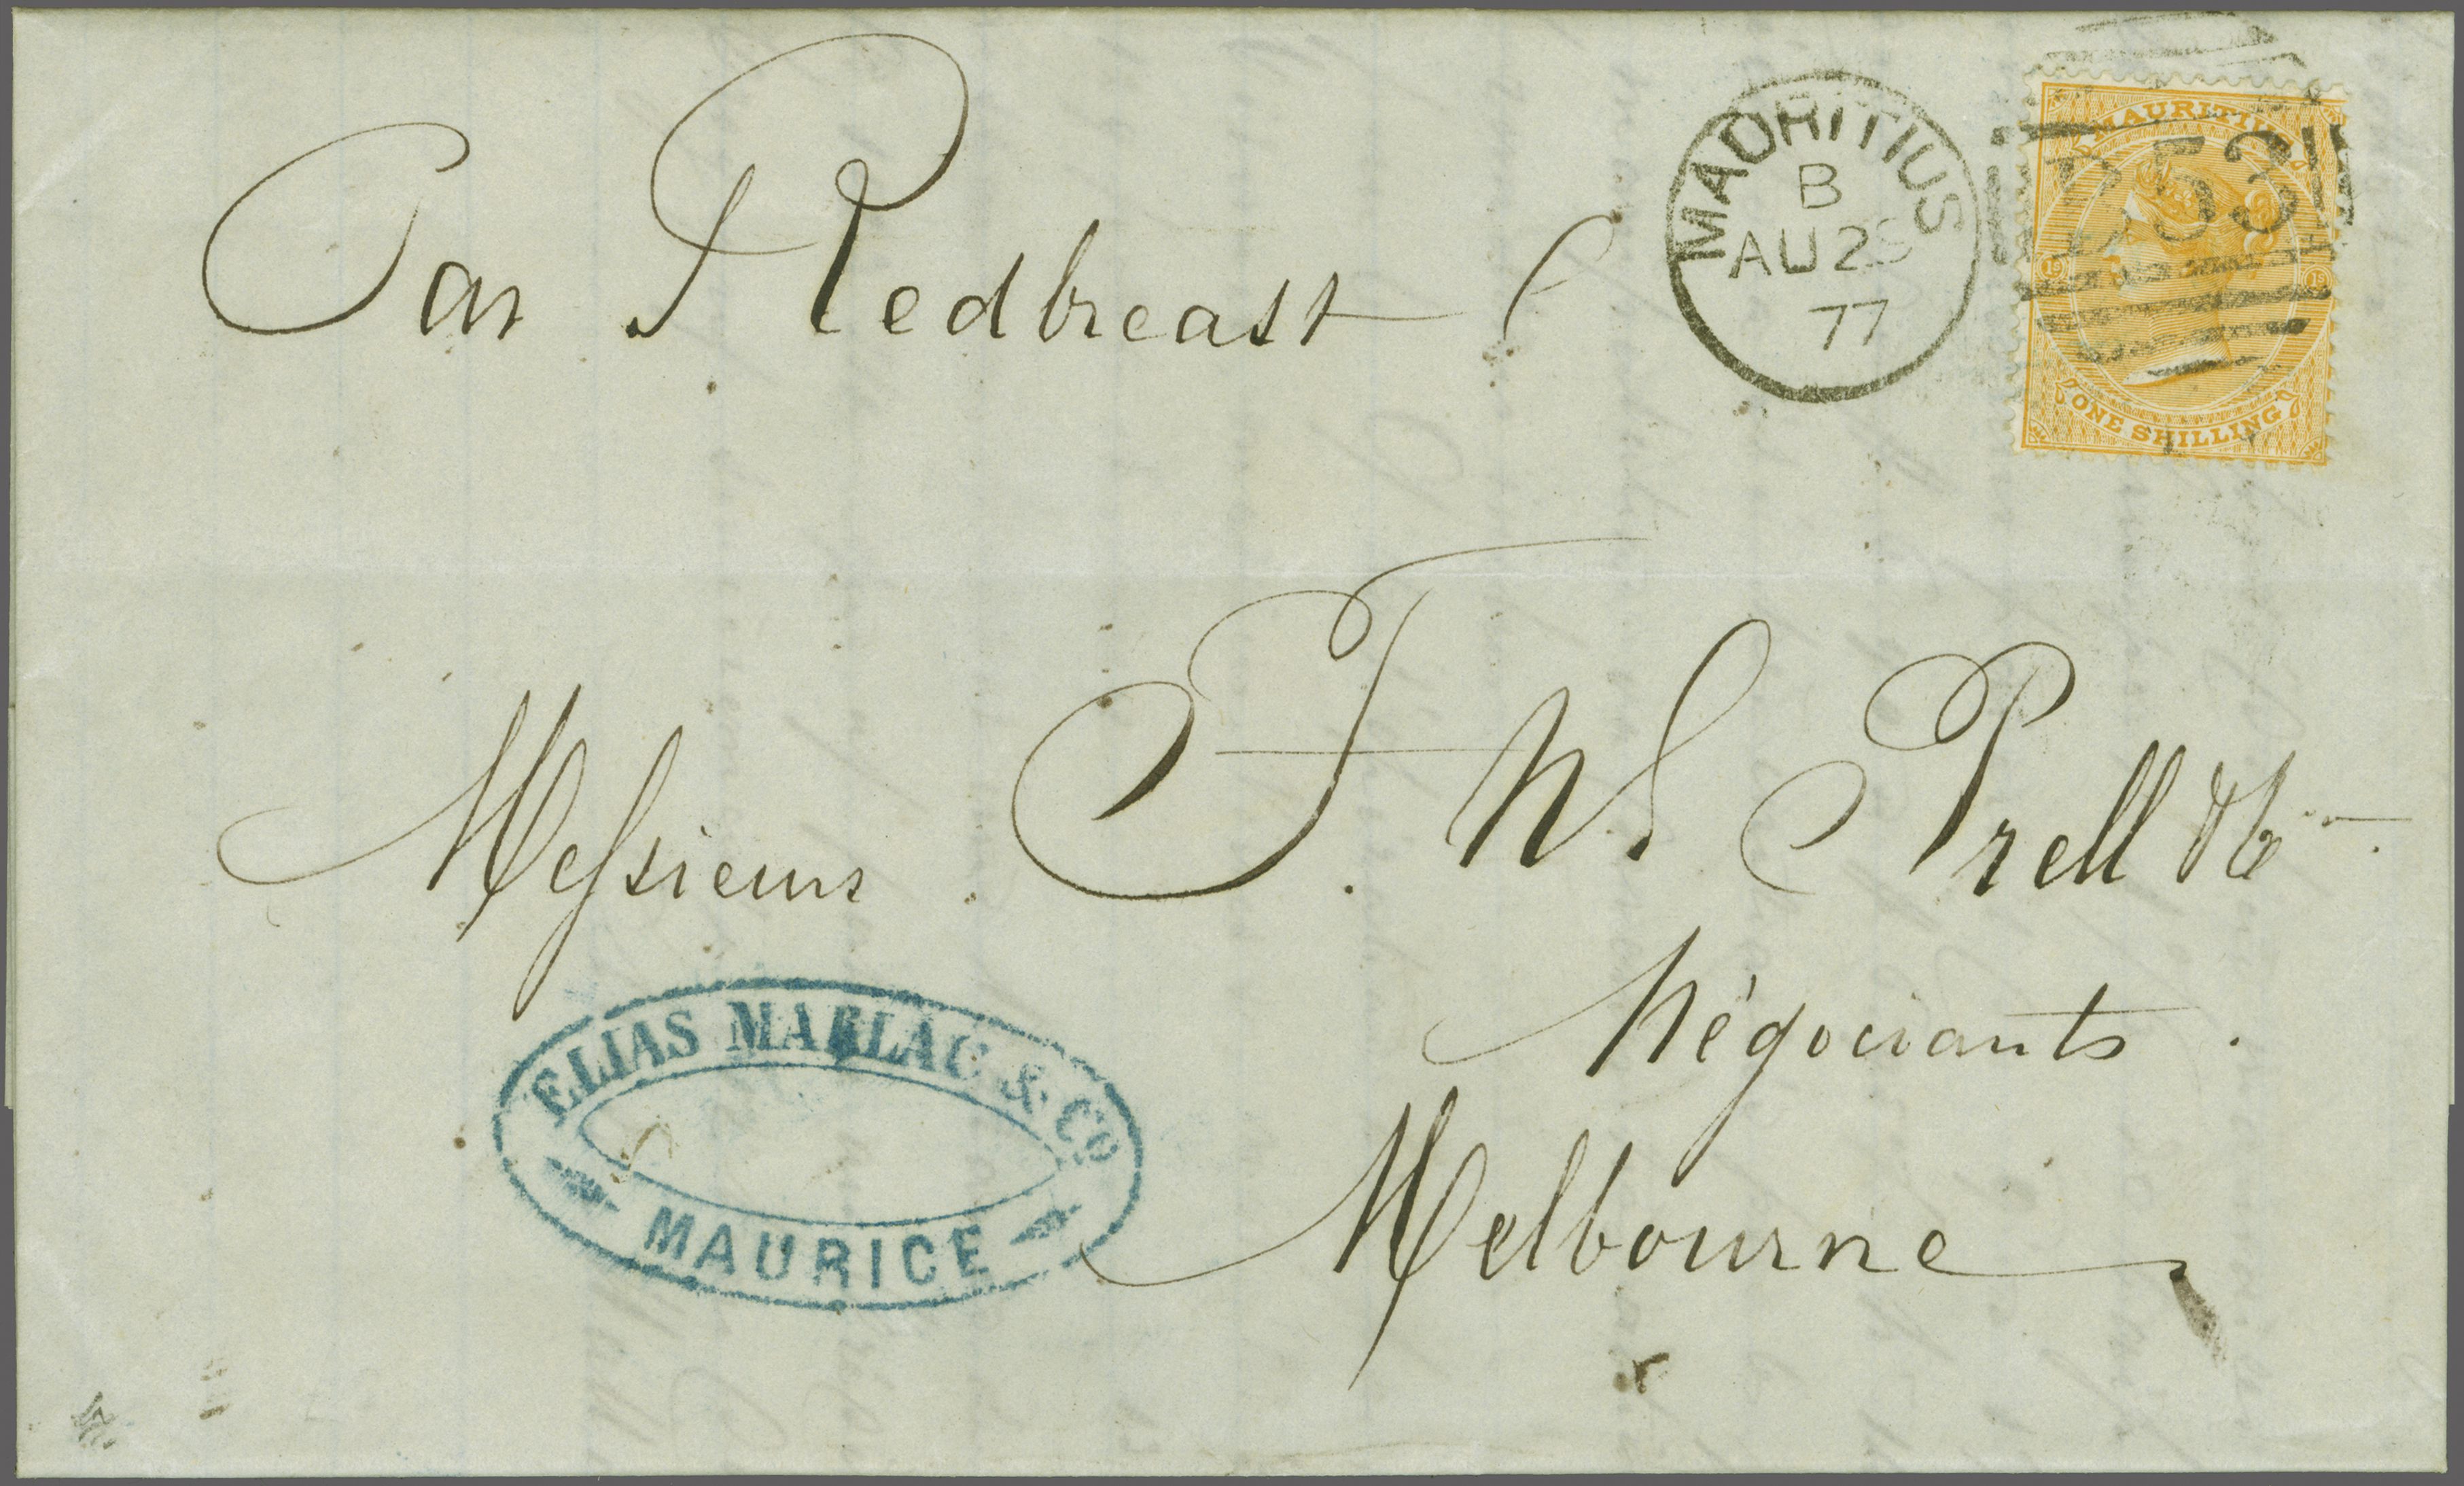 Par Redbreast
MAURITIUS
B
AU 28
77
MAURITIUS
B53
ONE SHILLING
Messieurs F. W. S Prell & Co.
Négociants.
Melbourne
ELIAS MARLAU & Co
MAURICE